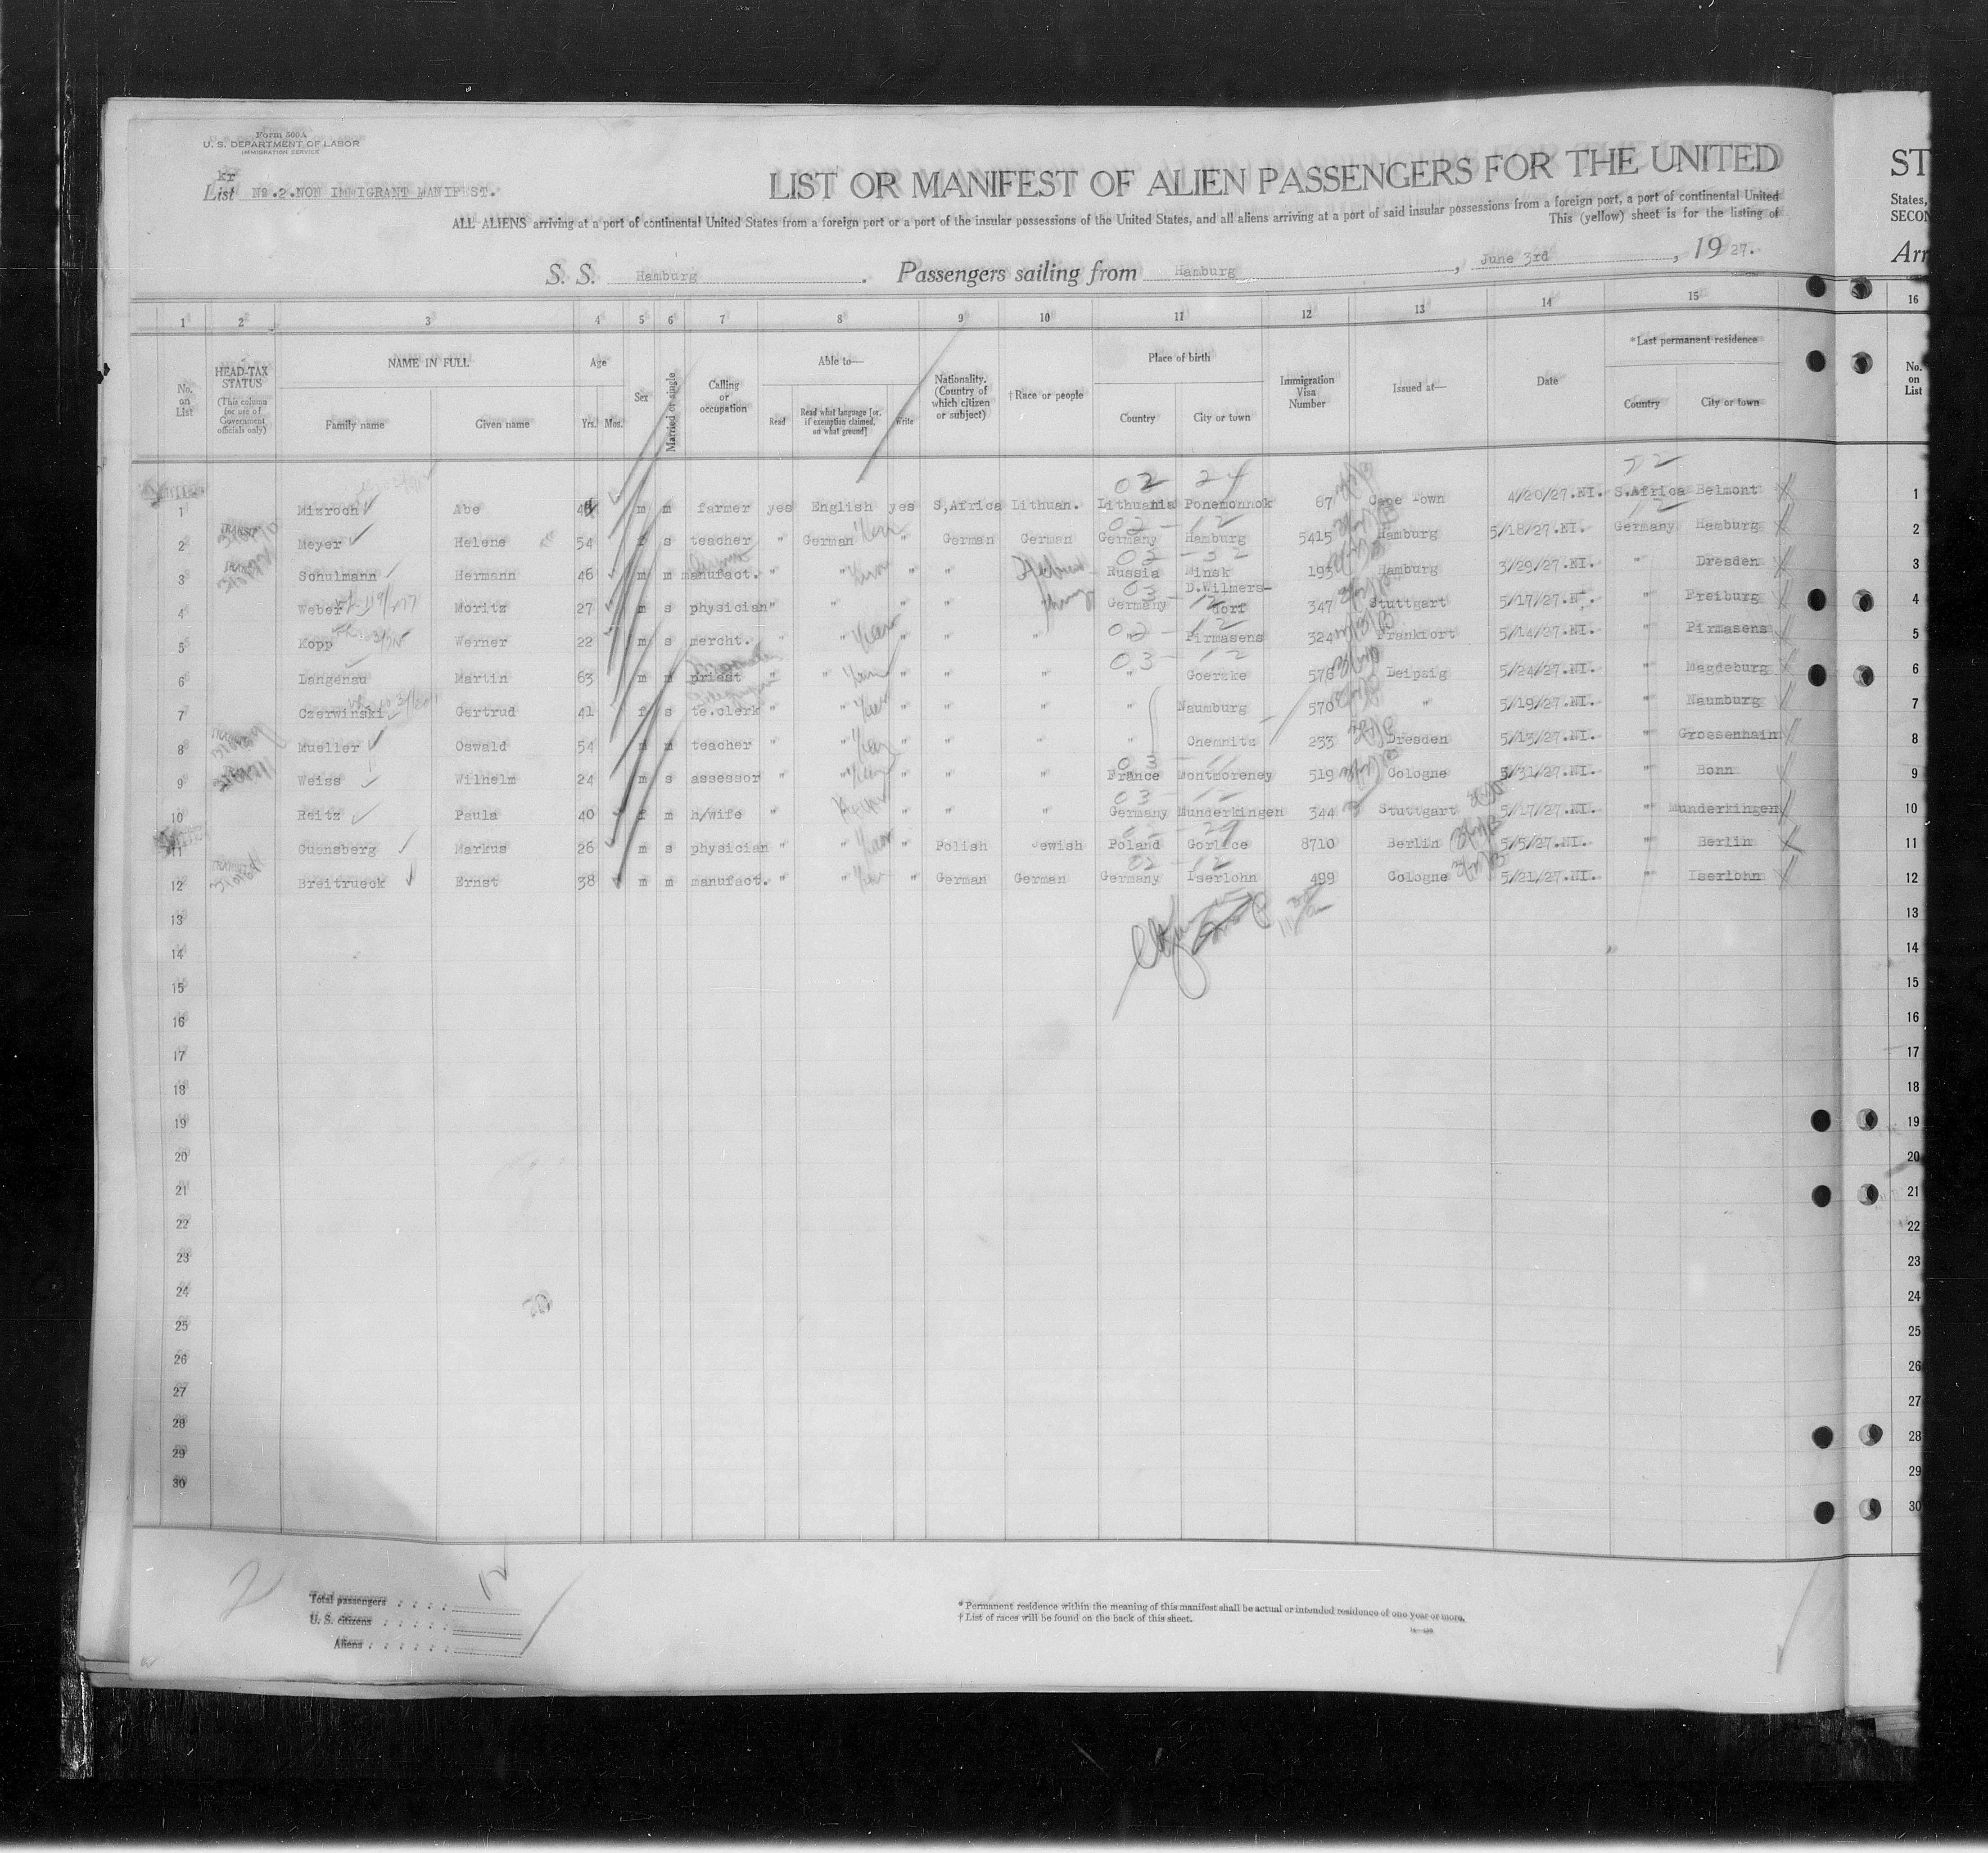 Form 560A
U. S. DEPARTMENT OF LABOR
IMMIGRATION SERVICE
kr
List No.2.NON IMMIGRANT MANIFEST.
LIST OR MANIFEST OF ALIEN PASSENGERS FOR THE UNITED
ST
ALL ALIENS arriving at a port of continental United States from a foreign port or a port of the insular possessions of the United States, and all aliens arriving at a port of said insular possessions from a foreign port, a port of continental United
States,
This (yellow) sheet is for the listing of
SECON
S. S. Hamburg . Passengers sailing from Hamburg , June 3rd , 1927.
Arr
1 2 3 4 5 6 7 8 9 10 11 12 13 14 15 16
No. on List
HEAD-TAX STATUS (This column for use of Government officials only)
NAME IN FULL
Family name Given name
Age
Yrs. Mos.
Sex
Married or single
Calling or occupation
Able to—
Read Read what language [or, if exemption claimed, on what ground] Write
Nationality. (Country of which citizen or subject)
†Race or people
Place of birth
Country City or town
Immigration Visa Number
Issued at—
Date
*Last permanent residence
Country City or town
No. on List
02 24 22
1 Mizroch Abe m m farmer yes English yes S,Africa Lithuan. Lithuania Ponemonnok 67 Cape Town 4/20/27.NI. S.Africa Belmont 1
2 TRANSIT Meyer Helene 54 f s teacher " German " German German Germany Hamburg 5415 Hamburg 5/18/27.NI. Germany Hamburg 2
3 TRANSIT Schulmann Hermann 46 m m manufact. " " " " Hebrew Russia Minsk 195 Hamburg 3/29/27.NI. " Dresden 3
4 Weber Moritz 27 m s physician " " " " Germany D.Wilmersdorf 347 Stuttgart 5/17/27.NI. " Freiburg 4
5 Kopp Werner 22 m s mercht. " " " " " " Pirmasens 324 Frankfort 5/14/27.NI. " Pirmasens 5
6 Langenau Martin 63 m m priest " " " " " " Goerzke 576 Leipzig 5/24/27.NI. " Magdeburg 6
7 Czerwinski Gertrud 41 f s te.clerk " " " " " " Naumburg 570 " 5/19/27.NI. " Naumburg 7
8 Mueller Oswald 54 m m teacher " " " " " " Chemnitz 233 Dresden 5/13/27.NI. " Grossenhain 8
9 Weiss Wilhelm 24 m s assessor " " " " " France Montmoreney 519 Cologne 5/31/27.NI. " Bonn 9
10 Reitz Paula 40 f m h/wife " " " " Germany Munderkingen 344 Stuttgart 5/17/27.NI. " Munderkingen 10
11 Guensberg Markus 26 m s physician " " " Polish Jewish Poland Gorlice 8710 Berlin 5/5/27.NI. " Berlin 11
12 Breitrueck Ernst 38 m m manufact. " " " German German Germany Iserlohn 499 Cologne 5/21/27.NI. " Iserlohn 12
13 13
14 14
15 15
16 16
17 17
18 18
19 19
20 20
21 21
22 22
23 23
24 24
25 25
26 26
27 27
28 28
29 29
30 30
2
Total passengers 12
U. S. citizens
Aliens
* Permanent residence within the meaning of this manifest shall be actual or intended residence of one year or more.
† List of races will be found on the back of this sheet.